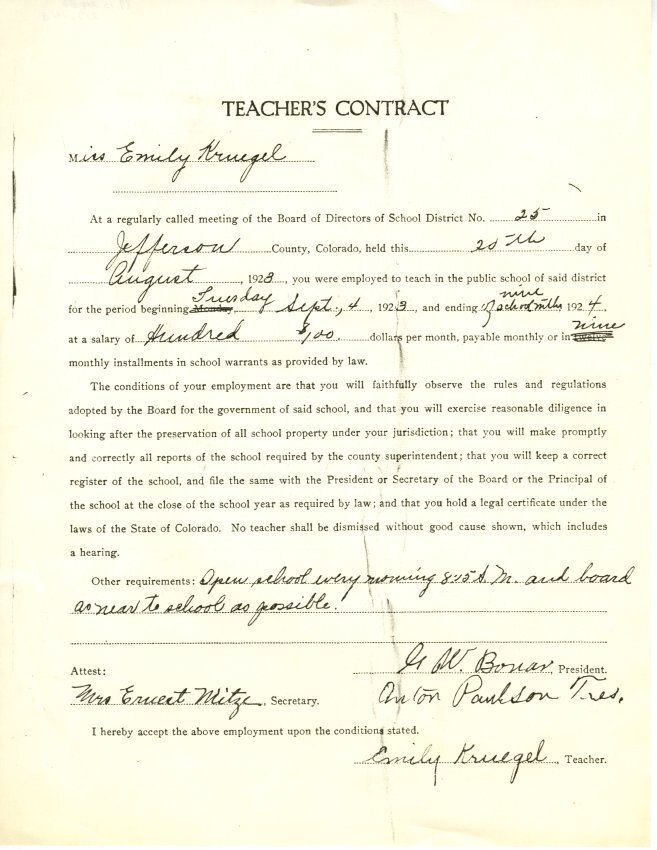 TEACHER'S CONTRACT
Miss Emily Kruegel
At a regularly called meeting of the Board of Directors of School District No. 25 in
Jefferson County, Colorado, held this 25th day of
August, 1923, you were employed to teach in the public school of said district
for the period beginning Monday Tuesday Sept., 4, 1923, and ending of nine school mths 1924,
at a salary of Hundred $100. dollars per month, payable monthly or in twelve nine
monthly installments in school warrants as provided by law.
The conditions of your employment are that you will faithfully observe the rules and regulations
adopted by the Board for the government of said school, and that you will exercise reasonable diligence in
looking after the preservation of all school property under your jurisdiction; that you will make promptly
and correctly all reports of the school required by the county superintendent; that you will keep a correct
register of the school, and file the same with the President or Secretary of the Board or the Principal of
the school at the close of the school year as required by law; and that you hold a legal certificate under the
laws of the State of Colorado. No teacher shall be dismissed without good cause shown, which includes
a hearing.
Other requirements: Open school every morning 8:45 A.M. and board
as near to school as possible.
Attest: G W. Bonar, President.
Mrs Ernest Mitze, Secretary. Anton Paulson Tres.
I hereby accept the above employment upon the conditions stated.
Emily Kruegel, Teacher.